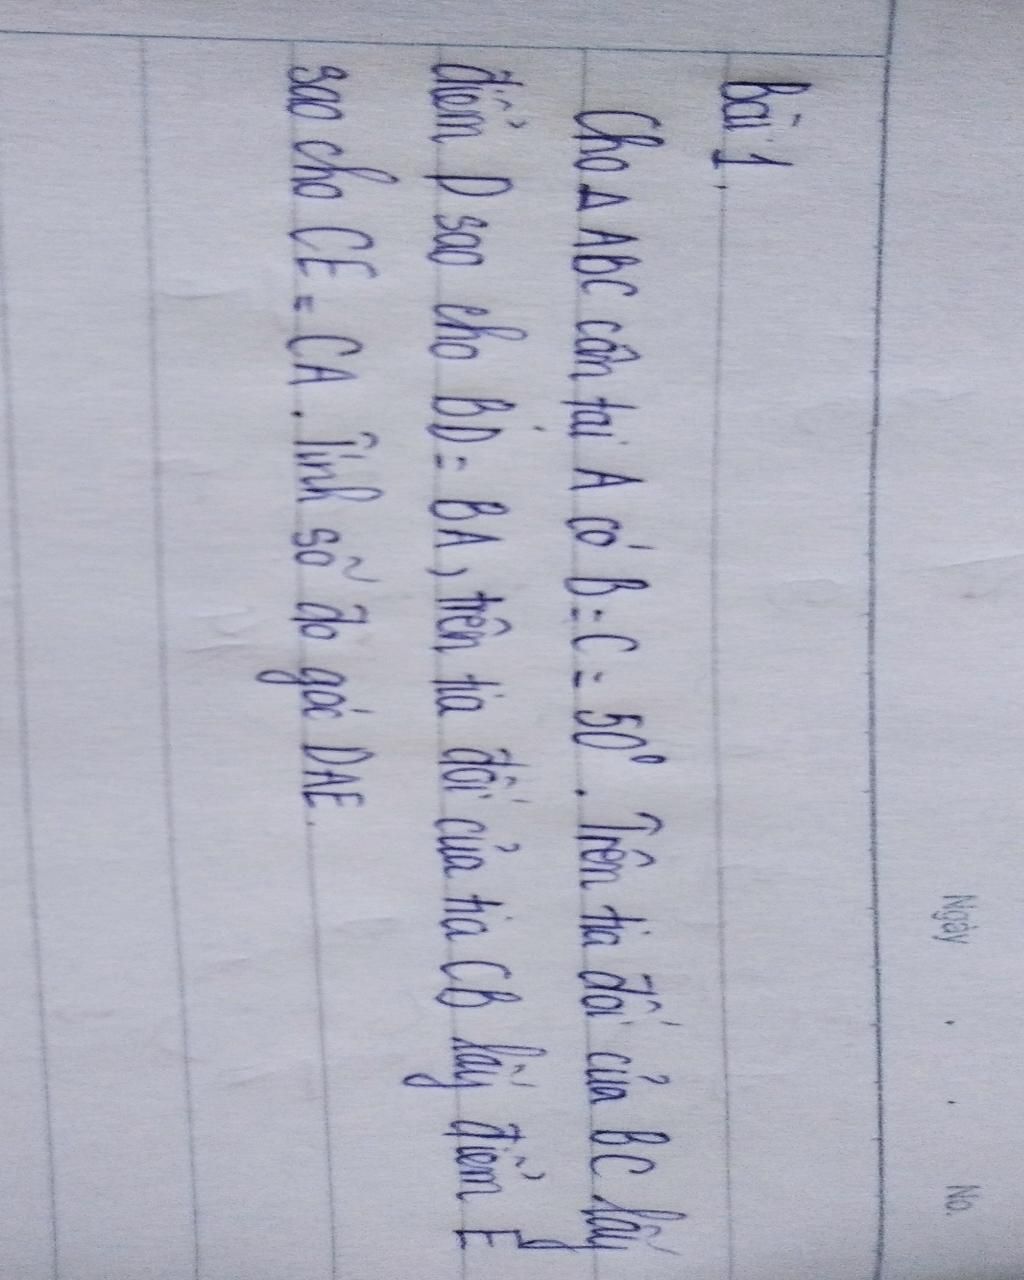 Ngày . . No.
Bài 1.
Cho Δ ABC cân tại A có B = C = 50°. Trên tia đối của BC lấy
điểm D sao cho BD = BA, trên tia đối của tia CB lấy điểm E
sao cho CE = CA. Tính số đo góc DAE.